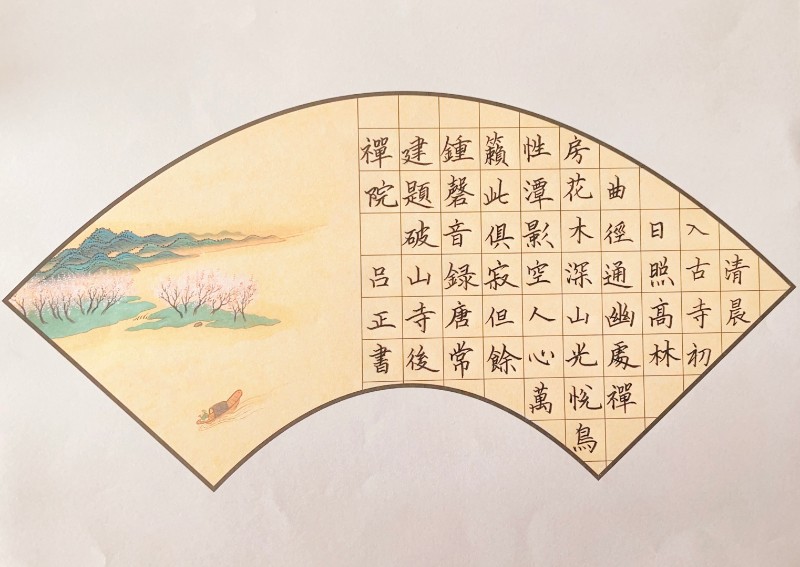 清晨
入古寺初
日照高林
曲徑通幽處禪
房花木深山光悅鳥
性潭影空人心萬
籟此俱寂但餘
鍾磬音録唐常
建題破山寺後
禪院 吕正書